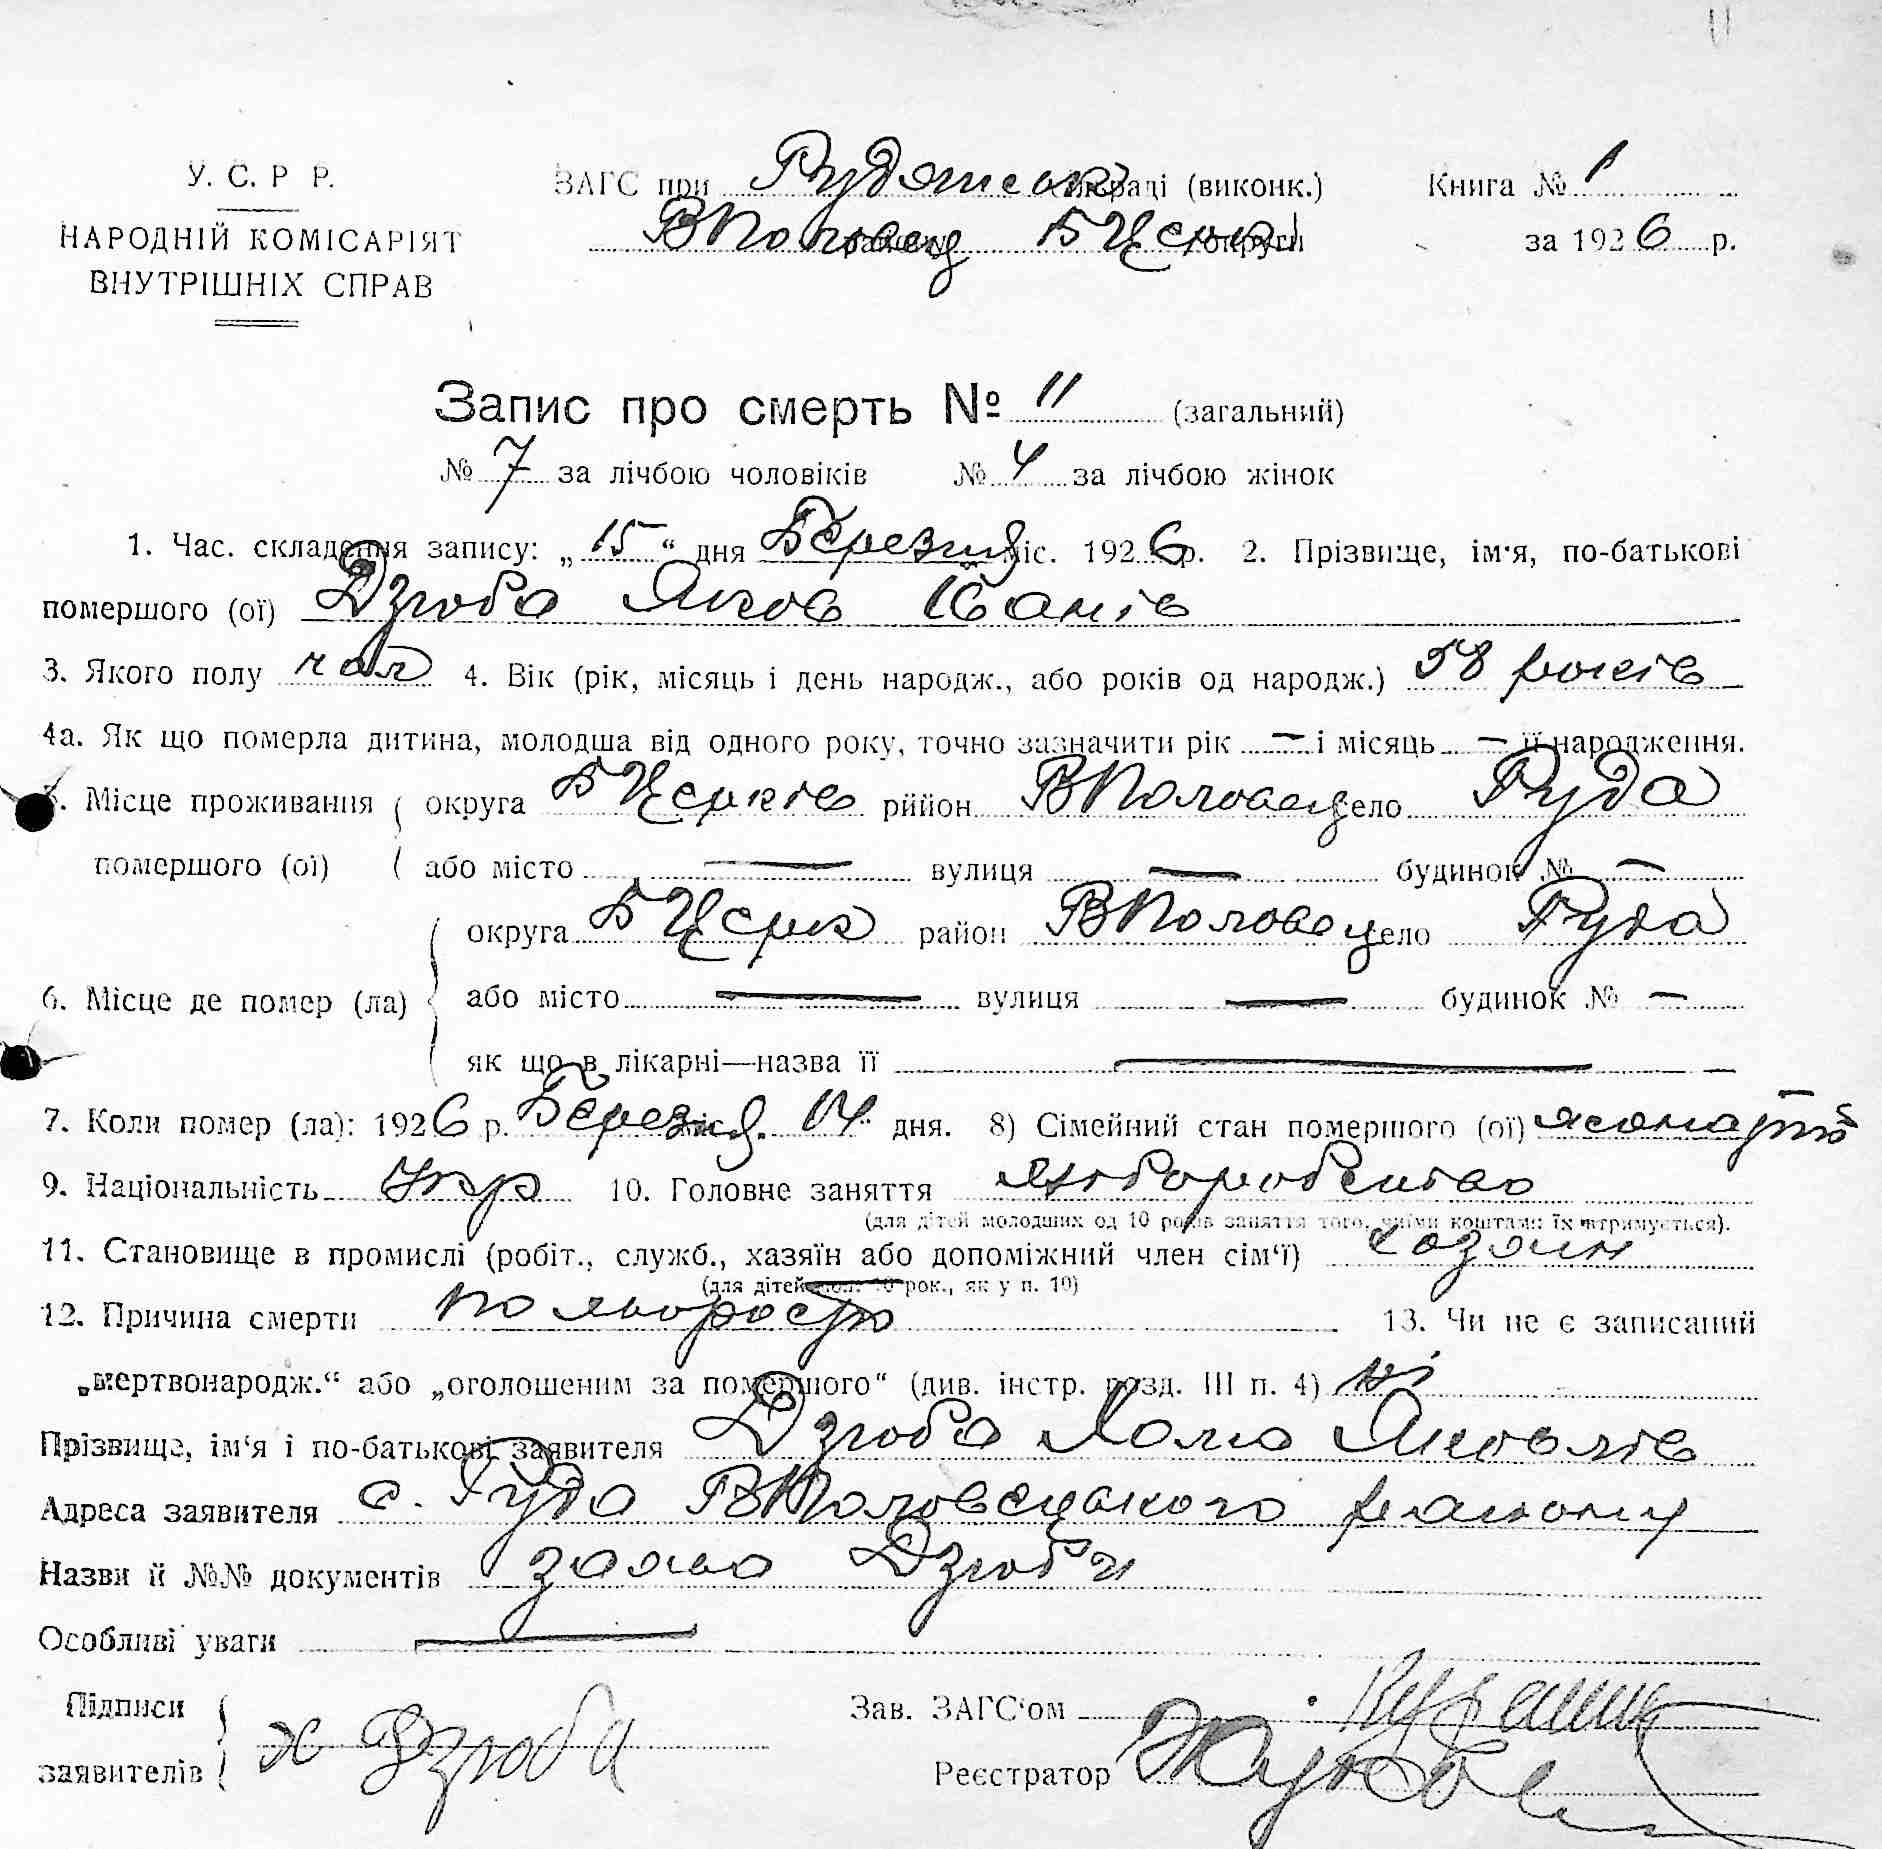 У. С. Р Р.
НАРОДНІЙ КОМІСАРІЯТ
ВНУТРІШНІХ СПРАВ
ЗАГС при Рудянськ раді (виконк.)
ВПоловец Б Церкі округи
Книга № 1
за 1926 р.
Запис про смерть № 11 (загальний)
№ 7 за лічбою чоловіків № 4 за лічбою жінок
1. Час. складення запису: „15“ дня Березня міс. 1926 р. 2. Прізвище, ім'я, по-батькові
помершого (ої) Дзюба Яков Іванів
3. Якого полу чол 4. Вік (рік, місяць і день народж., або років од народж.) 58 років
4а. Як що померла дитина, молодша від одного року, точно зазначити рік — і місяць — її народження.
5. Місце проживання округа Б Церків рийон ВПоловец село Руда
помершого (ої) або місто — вулиця — будинок № —
округа Б Церк район ВПоловец село Руда
6. Місце де помер (ла) або місто — вулиця — будинок № —
як що в лікарні—назва її —
7. Коли помер (ла): 1926 р. Березня міс. 14 дня. 8) Сімейний стан помершого (ої) жонатий
9. Національність Укр 10. Головне заняття хліборобство
(для дітей молодших од 10 років заняття того, чиїми коштами їх втримується).
11. Становище в промислі (робіт., служб., хазяїн або допоміжний член сім‘ї) хозяин
(для дітей мол. 10 рок., як у п. 10)
12. Причина смерти по 13. Чи не є записаний
„мертвонародж.“ або „оголошеним за помершого“ (див. інстр. розд. III п. 4) ні
Прізвище, ім‘я і по-батькові заявителя Дзюба Хома Яковлів
Адреса заявителя с. Руда ВПоловецького району
Назви й №№ документів заява Дзюби
Особливі уваги —
Підписи
заявителів х Дзюба
Зав. ЗАГС‘ом
Реєстратор